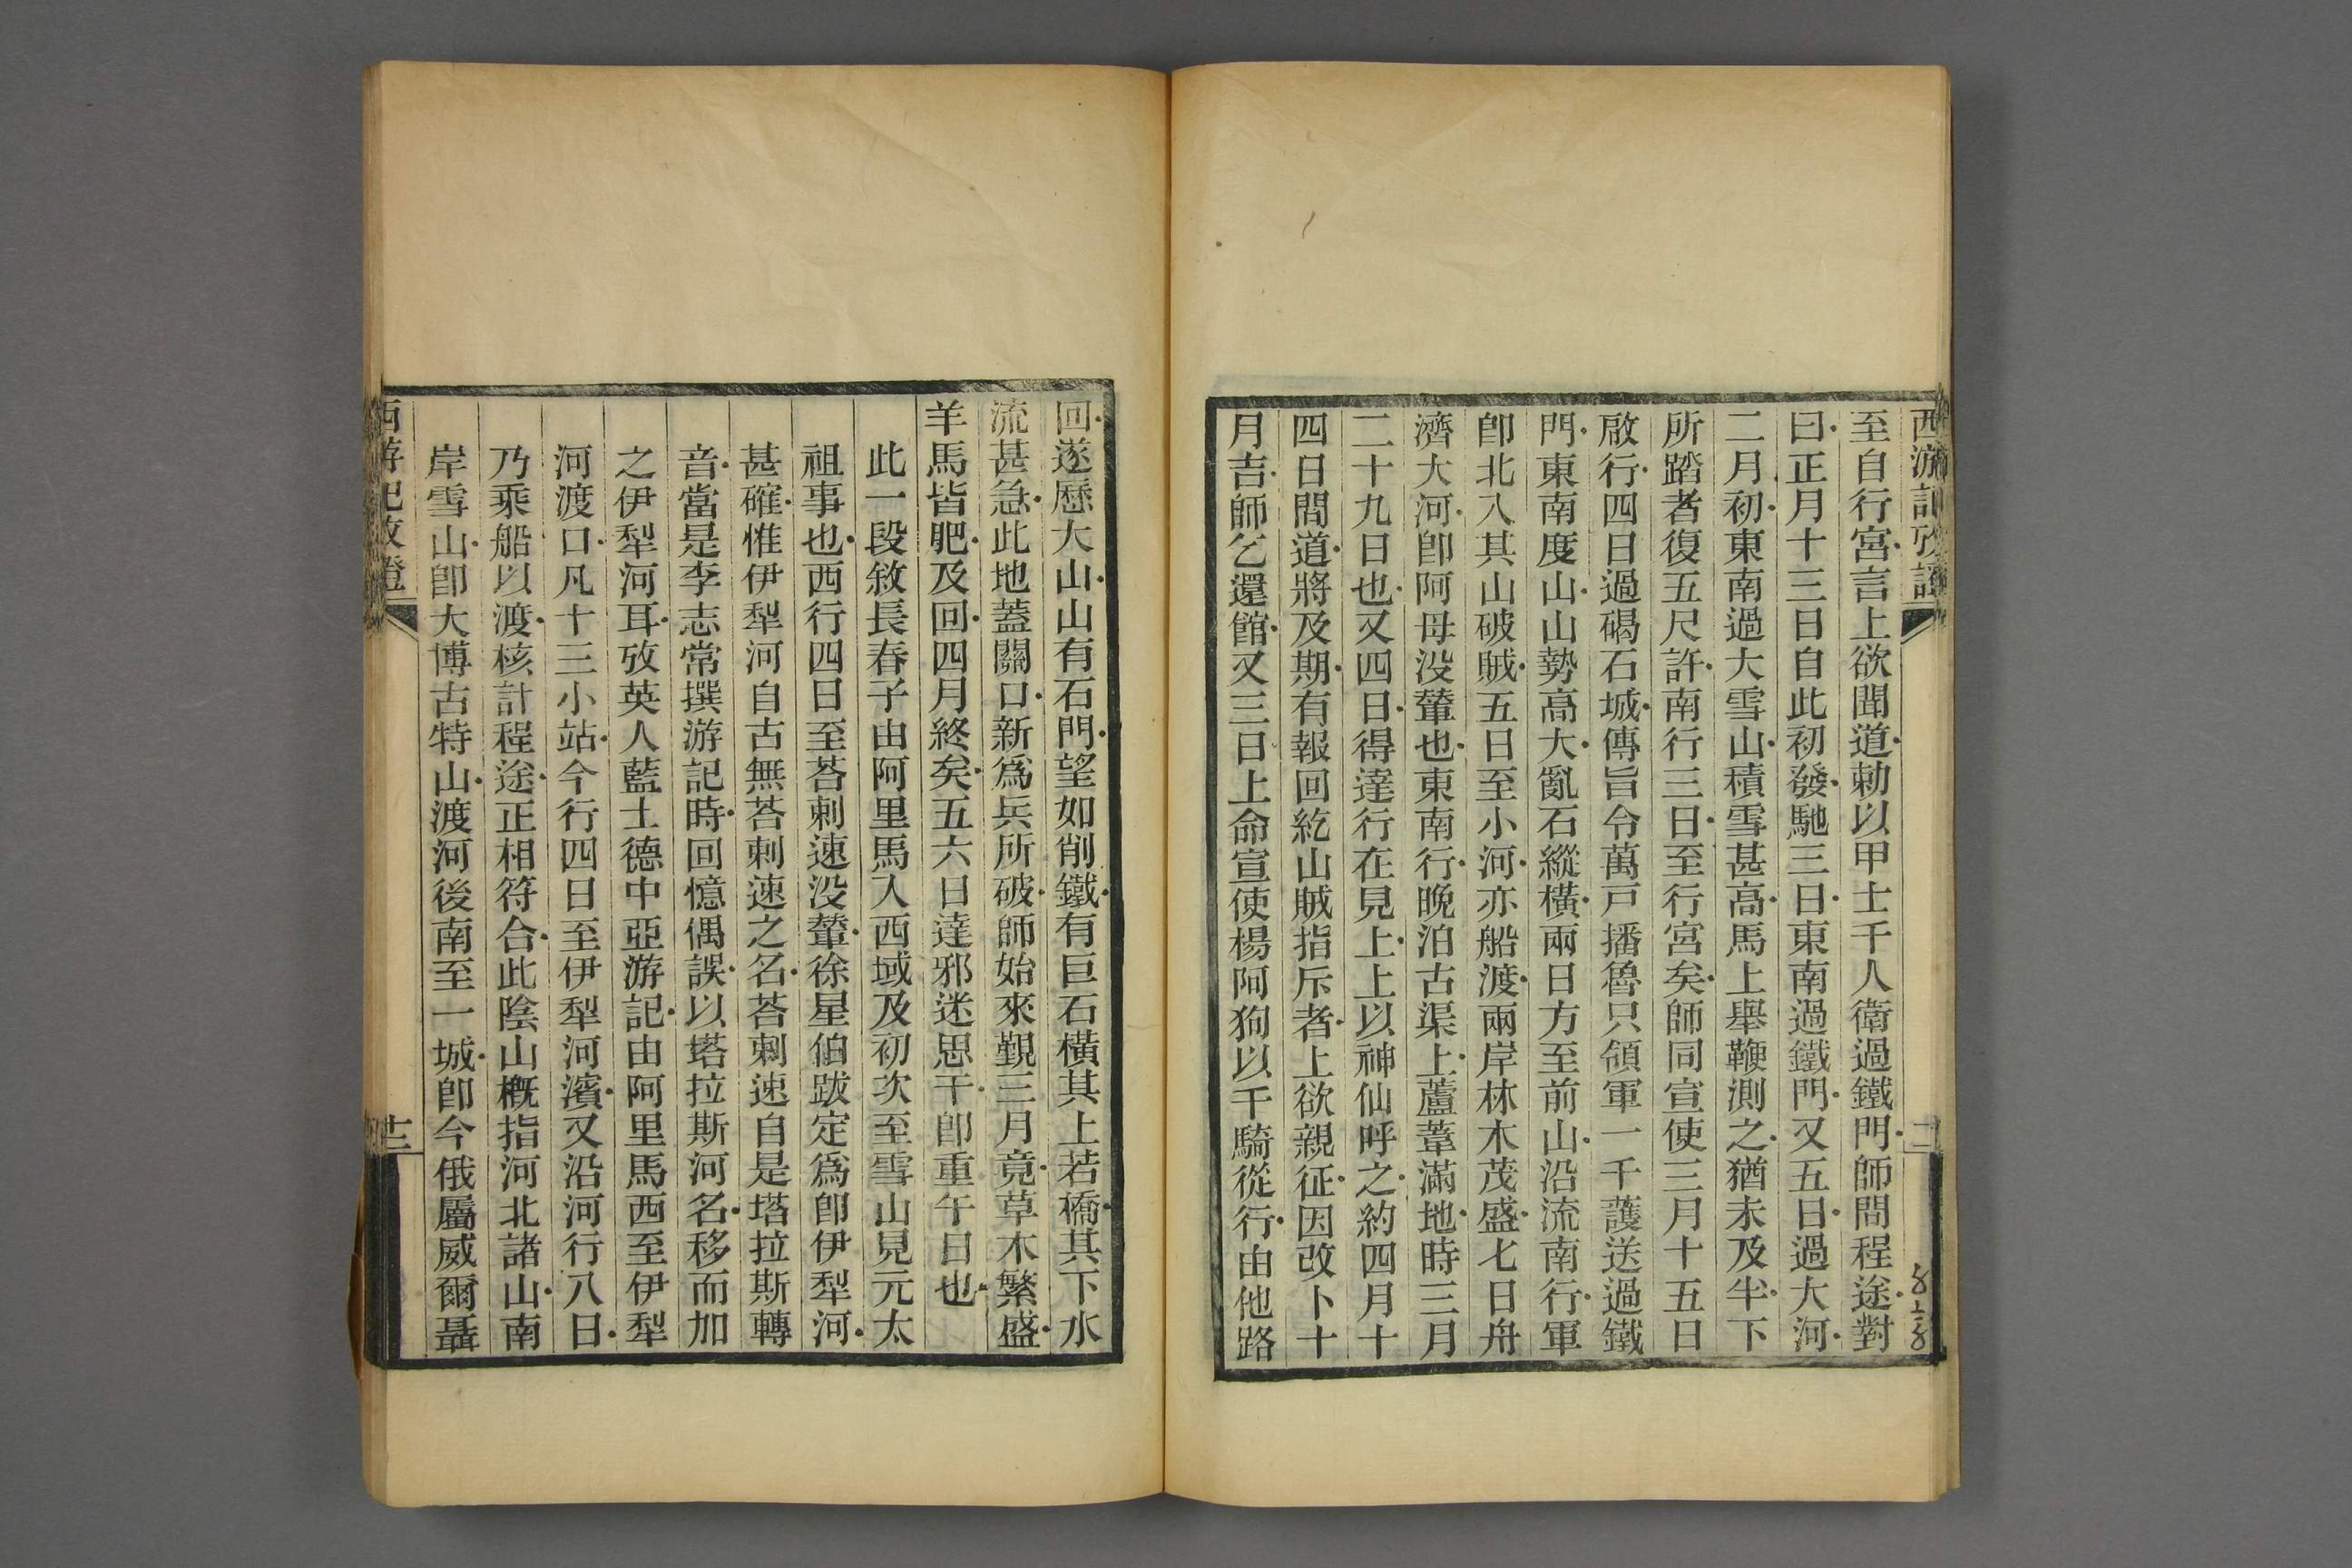 西游記攷證
至自行宮言上欲聞道勅以甲士千人衛過鐵門師問程途對
曰正月十三日自此初發馳三日東南過鐵門又五日過大河
二月初東南過大雪山積雪甚高馬上舉鞭測之猶未及半下
所踏者復五尺許南行三日至行宮矣師同宣使三月十五日
啟行四日過碣石城傳旨令萬戸播魯只領軍一千護送過鐵
門東南度山山勢高大亂石縱橫兩日方至前山沿流南行軍
卽北入其山破賊五日至小河亦船渡兩岸林木茂盛七日舟
濟大河卽阿母没輦也東南行晚泊古渠上蘆葦滿地時三月
二十九日也又四日得達行在見上上以神仙呼之約四月十
四日問道將及期有報回紇山賊指斥者上欲親征因改卜十
月吉師乞還館又三日上命宣使楊阿狗以千騎從行由他路
回遂歷大山山有石門望如削鐵有巨石橫其上若橋其下水
流甚急此地蓋關口新爲兵所破師始來覲三月竟草木繁盛
羊馬皆肥及回四月終矣五六日達邪迷思干卽重午日也
此一段敘長春子由阿里馬入西域及初次至雪山見元太
祖事也西行四日至荅剌速没輦徐星伯跋定爲卽伊犁河
甚確惟伊犁河自古無荅剌速之名荅剌速自是塔拉斯轉
音當是李志常撰游記時回憶偶誤以塔拉斯河名移而加
之伊犁河耳攷英人藍士德中亞游記由阿里馬西至伊犁
河渡口凡十三小站今行四日至伊犁河濱又沿河行八日
乃乘船以渡核計程途正相符合此陰山概指河北諸山南
岸雪山卽大博古特山渡河後南至一城卽今俄屬威爾聶
西游記攷證
十二